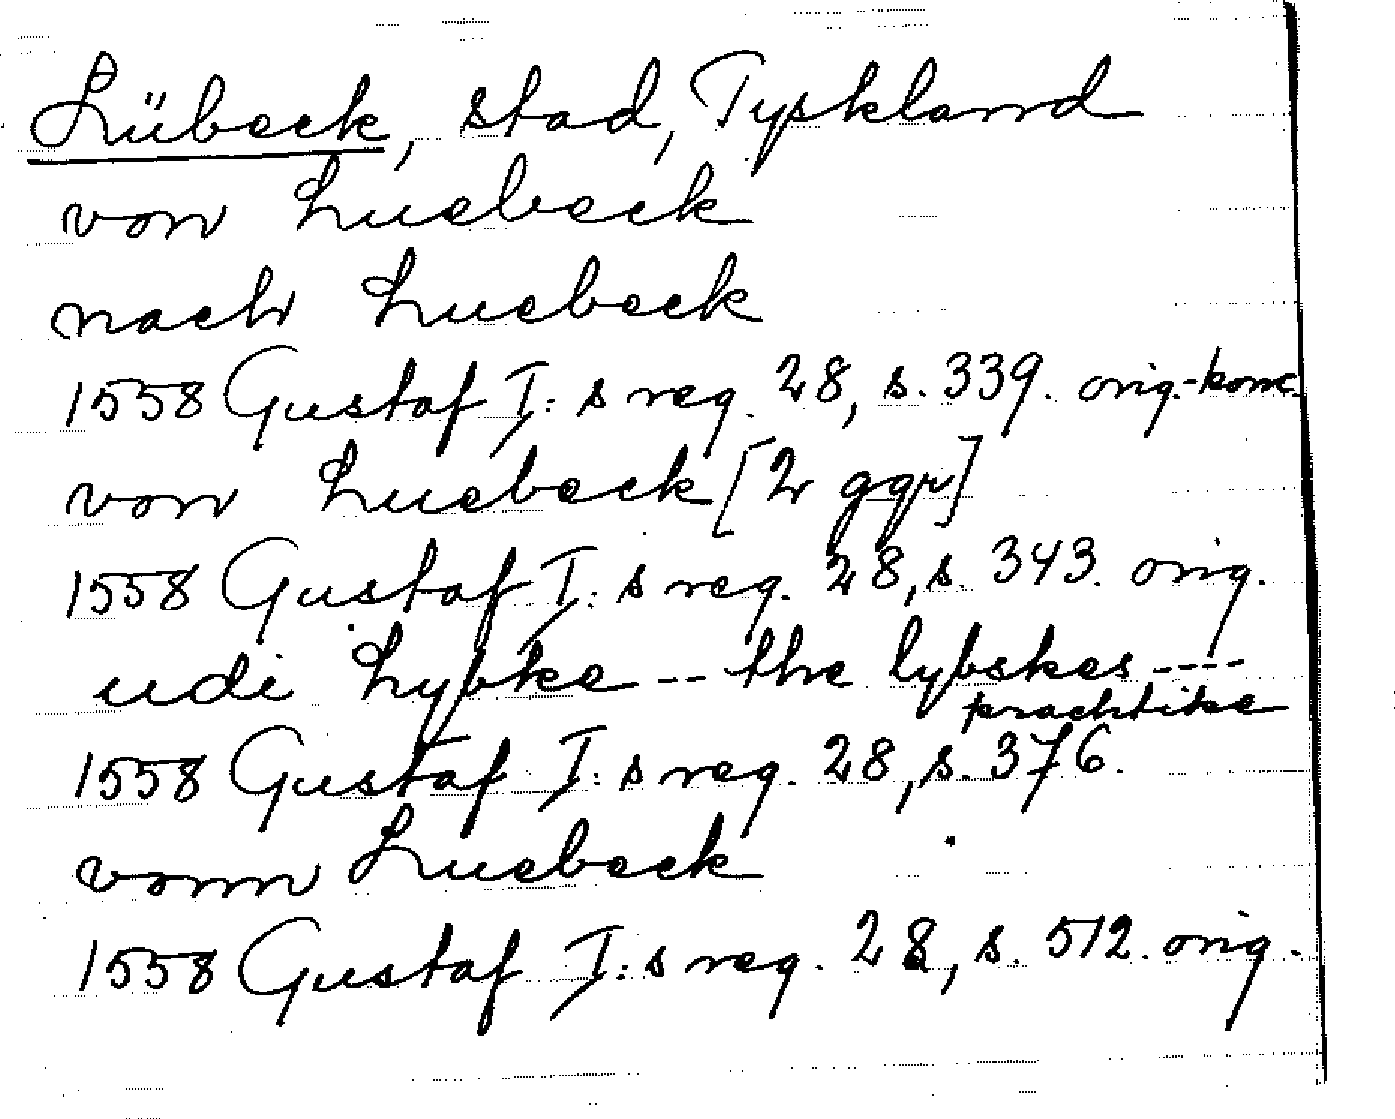 Lübeck, stad, Tyskland
von Luebeck
nach Luebeck
1558 Gustaf I:s reg. 28, s. 339. orig.-konc.
von Luebeck [2 ggr]
1558 Gustaf I:s reg. 28, s. 343. orig.
udi Lybke -- the lybskes ----
prachtike
1558 Gustaf I:s reg. 28, s. 376.
vonn Luebeck
1558 Gustaf I:s reg. 28, s. 512. orig.